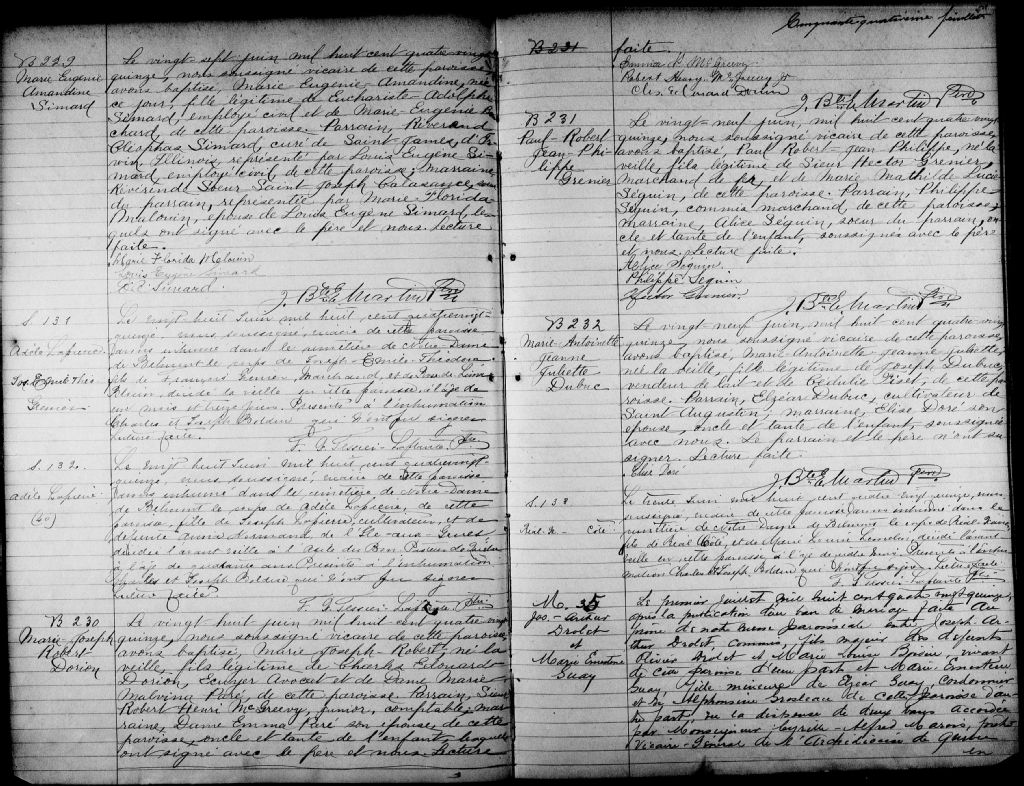 B 229
Marie Eugénie
Amandine
Simard
Le vingt sept juin mil huit cent quatre vingt
quinze, nous soussigné vicaire de cette paroisse
avons baptisé, Marie Eugénie Amandine, née
ce jour, fille légitime de Euchariste Adolphe
Simard, employé civil et de Marie Eugénie
chard, de cette paroisse. Parrain, Révérend
Cléophas Simard, curé de Saint James, d'Ir-
vin, Illinois, représenté par Louis Eugène Si-
mard, employé civil, de cette paroisse; marraine,
Révérende Soeur Saint Joseph Calasance, soeur
du parrain, représentée par Marie Florida
Malouin, épouse de Louis Eugène Simard, les-
quels ont signé avec le père et nous. Lecture
faite.
Marie Florida Malouin
Louis Eugène Simard
Simard
J. Bte E. Martin Ptre
S. 131
Adèle Lapierre
Jos. E. Emile Théo.
Grenier
Le vingt huit Juin mil huit cent quatrevingt-
quinze, nous soussigné, curé de cette paroisse
avons inhumé dans le cimetière de Notre Dame
de Belmont le corps de Joseph-Emile-Théodore
fils de François Grenier, Marchand et
décédé la veille en cette paroisse âgé de
un mois et treize jours. Présents à l'inhumation
Charles et Joseph Bolduc qui n'ont pu signer
Lecture faite.
F. G. Plessis-Laplante Ptre
S. 132.
Adèle Lapierre
(40)
Le vingt huit Juin mil huit cent quatrevingt-
quinze, nous soussigné, curé de cette paroisse
avons inhumé dans le cimetière de Notre-Dame
de Belmont le corps de Adèle Lapierre, de cette
paroisse, fille de Joseph Lapierre, cultivateur, et de
défunte de l'Ile-aux-Grues
décédée l'avant veille à l'Asile du Bon Pasteur de Québec
à l'âge de quarante ans. Présents à l'inhumation
Charles et Joseph Bolduc qui n'ont pu signer
Lecture faite.
F. G. Plessis-Laplante Ptre
B 230
Marie-Joseph
Robert
Dorion
Le vingt huit juin mil huit cent quatre vingt
quinze, nous soussigné vicaire de cette paroisse
avons baptisé, Marie Joseph-Robert, né la
veille, fils légitime de Charles Edouard
Dorion, Ecuyer Avocat et de Dame Marie
Malvina Paré, de cette paroisse. Parrain, Sieur
Robert Henri McGreevy, junior, comptable; mar-
raine, Dame Emma Paré son épouse, de cette
paroisse, oncle et tante de l'enfant, lesquels
ont signé avec le père et nous. Lecture
Cinquante quatrième feuillet
B 231
faite.
Emma P. McGreevy
Robert Henry McGreevy jr
Chs. Edouard Dorion
J. Bte E. Martin Ptre
B 231
Paul-Robert
Jean-Phi-
lippe
Grenier
Le vingt neuf juin, mil huit cent quatre vingt
quinze, nous soussigné vicaire de cette paroisse,
avons baptisé Paul Robert-Jean Philippe, né la
veille, fils légitime de Sieur Hector Grenier,
marchand de fer, et de Marie Mathilde Lucie
Séguin, de cette paroisse. Parrain, Philippe
Séguin, commis marchand, de cette paroisse;
marraine, Alice Séguin, soeur du parrain, on-
cle et tante de l'enfant, soussignés avec le père
et nous. Lecture faite.
Alice Séguin
Philippe Séguin
Hector Grenier
J. Bte E. Martin Ptre
B 232
Marie-Antoinette
Jeanne
Juliette
Dubuc
Le vingt-neuf juin, mil huit cent quatre-vingt
quinze, nous soussigné vicaire de cette paroisse,
avons baptisé, Marie-Antoinette-Jeanne Juliette,
née la veille, fille légitime de Joseph Dubuc,
vendeur de lait et de de cette pa-
roisse. Parrain, Elzéar Dubuc, cultivateur de
Saint Augustin; marraine, Elise Doré son
épouse, oncle et tante de l'enfant, soussignée
avec nous. Le parrain et le père n'ont su
signer. Lecture faite.
Elise Doré
J. Bte E. Martin Ptre
S. 133
Côté
Le trente Juin mil huit cent quatre vingt quinze, nous
soussigné, curé de cette paroisse avons inhumé dans le
cimetière de Notre Dame de Belmont le corps de
fils de Réal Côté, et de Marie décédé l'avant
veille en cette paroisse à l'âge de Présents à l'inhu-
mation Charles et Joseph Bolduc qui n'ont pu signer. Lecture faite
F. G. Plessis-Laplante Ptre
M. 35
Jos-Arthur
Drolet
et
Marie Ernestine
Guay
Le premier Juillet mil huit cent quatre vingt quinze,
après la publication d'un ban de mariage faite au
prône de notre messe paroissiale entre Joseph Ar-
thur Drolet, Commis, fils majeur des défunts
Olivier Drolet et Marie Louise vivant
de cette paroisse d'une part et Marie Ernestine
Guay, fille mineure de Elzéar Guay, Cordonnier
et de Alphonsine Groleau de cette paroisse d'au-
tre part, vu la dispense de deux bans accordée
par Monseigneur Cyrille-Alfred Marois,
Vicaire-Général de l'Archidiocèse de Québec
en